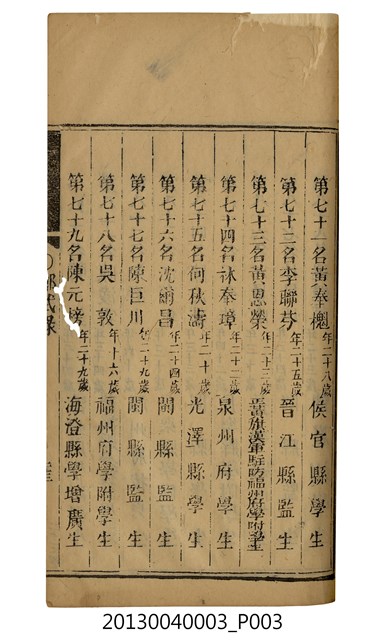 第七十一名黃奉 年二十八歲 侯官縣學生
第七十二名李聯芬 年二十五歲 晉江縣監生
第七十三名黃恩榮 年二十三歲 黃旗漢軍駐防福州府學附生
第七十四名詠奉璋 年二十二歲 泉州府學生
第七十五名何秋濤 年二十歲 光澤縣學生
第七十六名沈爾昌 年二十四歲 閩縣監生
第七十七名陳巨川 年二十九歲 閩縣監生
第七十八名吳敦 年十六歲 福州府學附學生
第七十九名陳元 年二十九歲 海澄縣學增廣生
鄉試錄
20130040003_P003